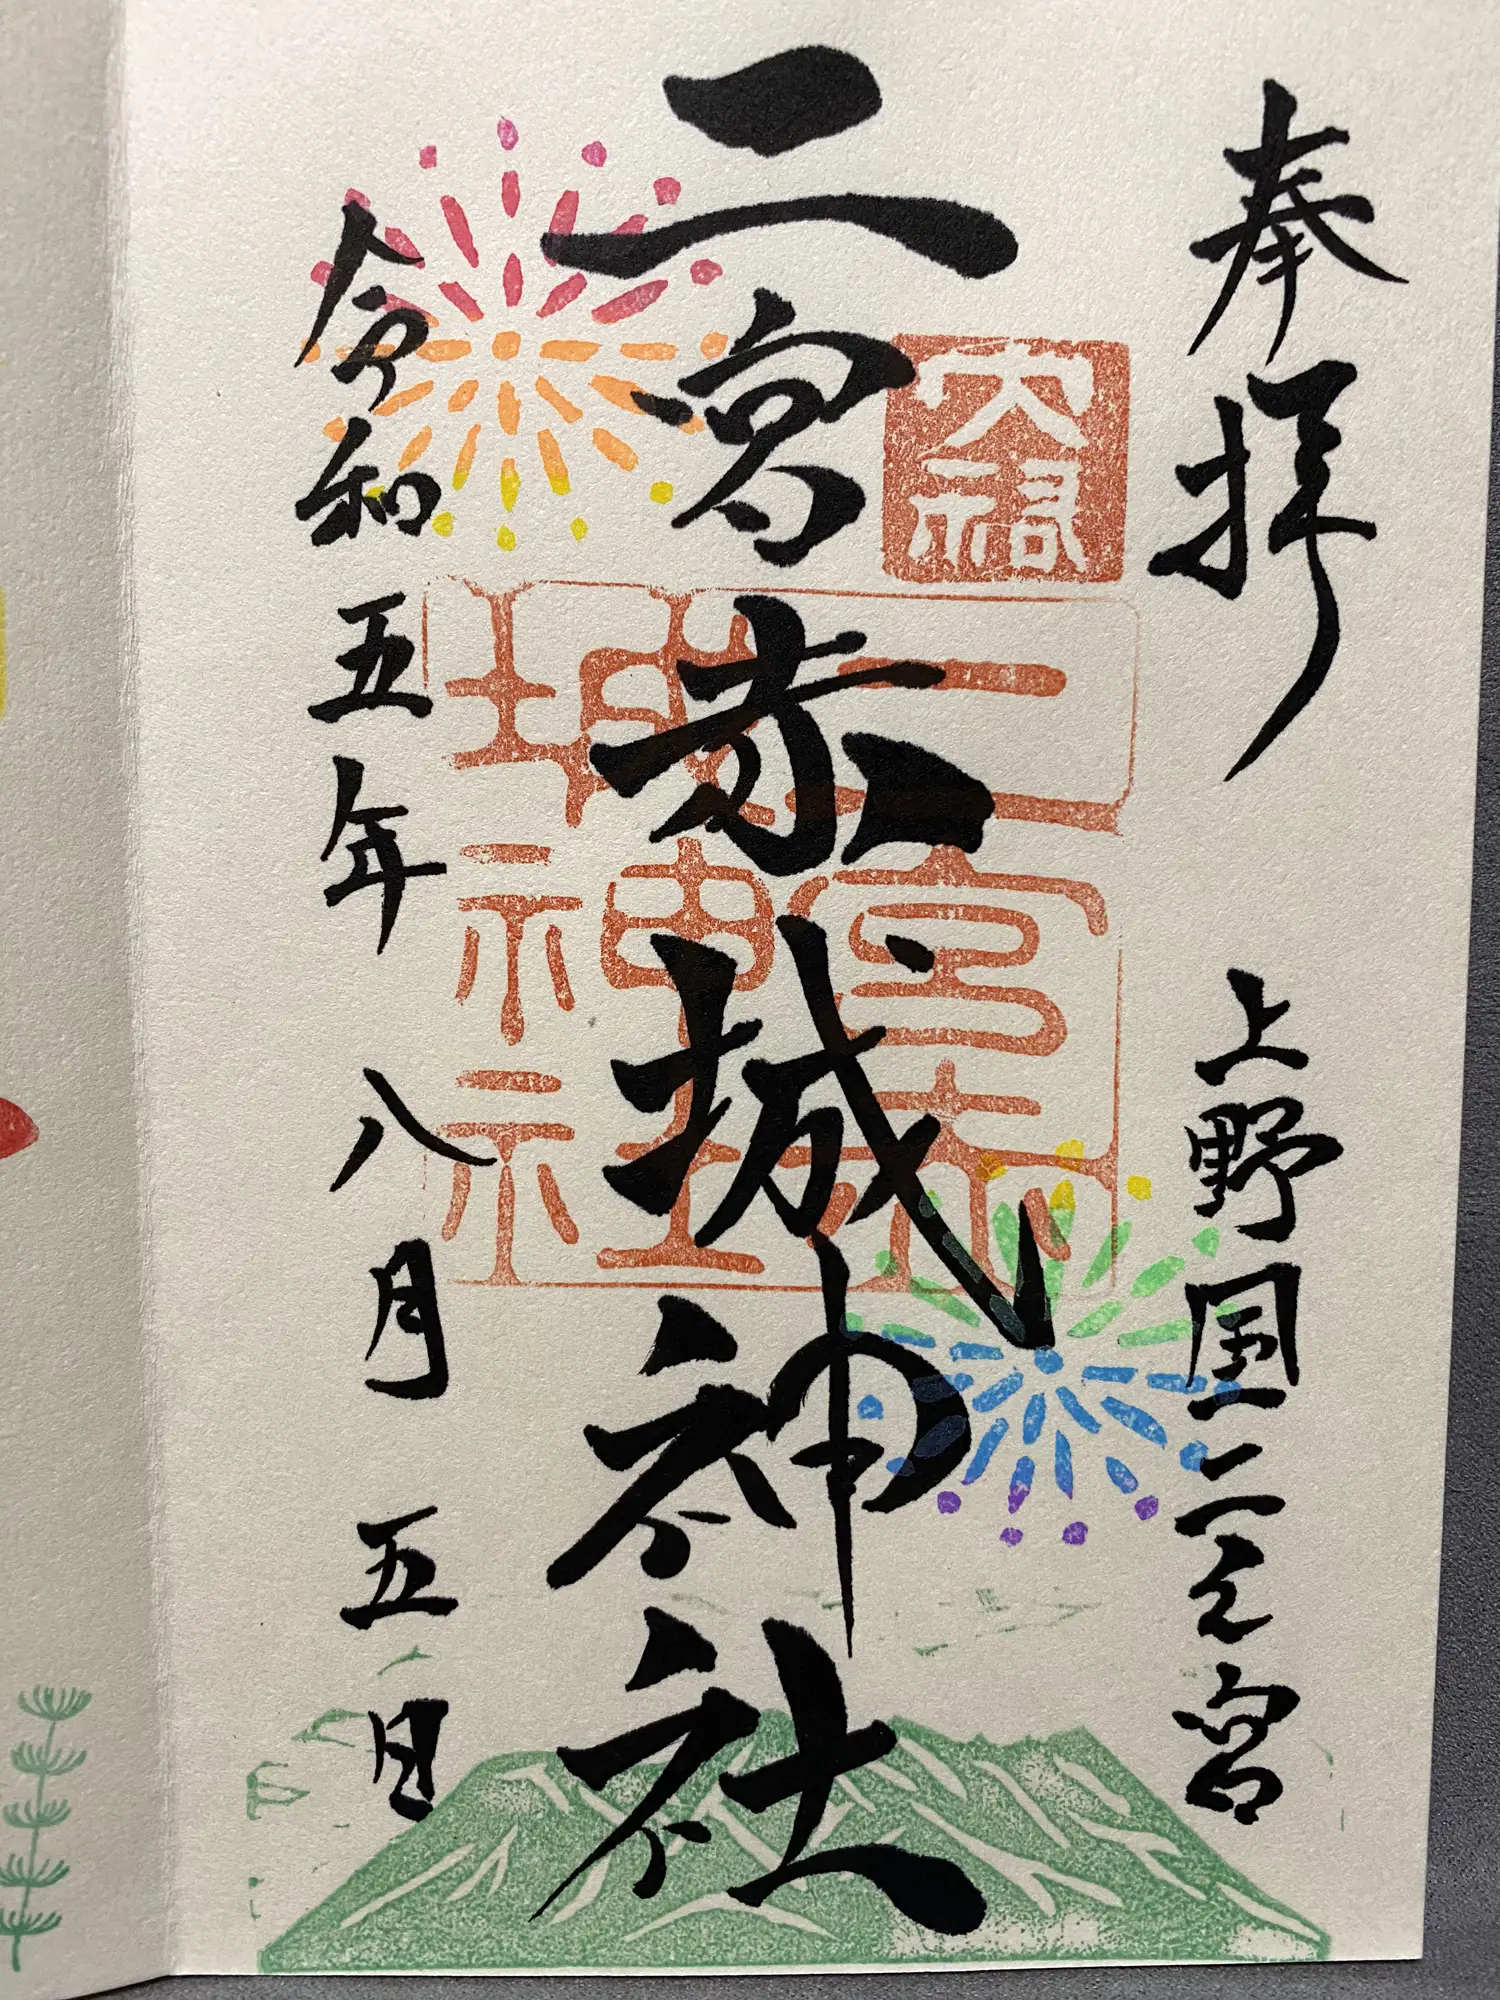 奉拝
上野国二之宮
大胡
二宮赤城神社
二宮赤城神社
令和五年八月五日